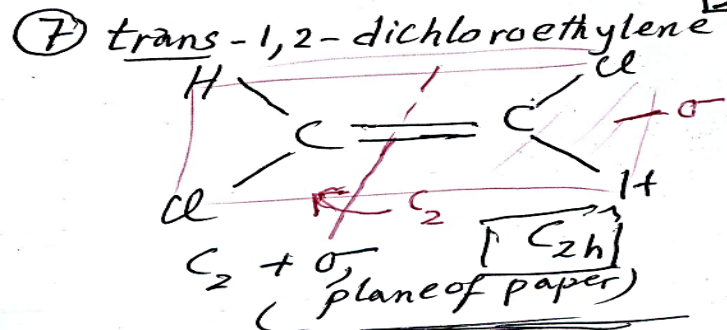 ⑦ trans-1,2-dichloroethylene
H Cl
C = C σ
Cl C₂ H
C₂ + σ, C₂h
(plane of paper)